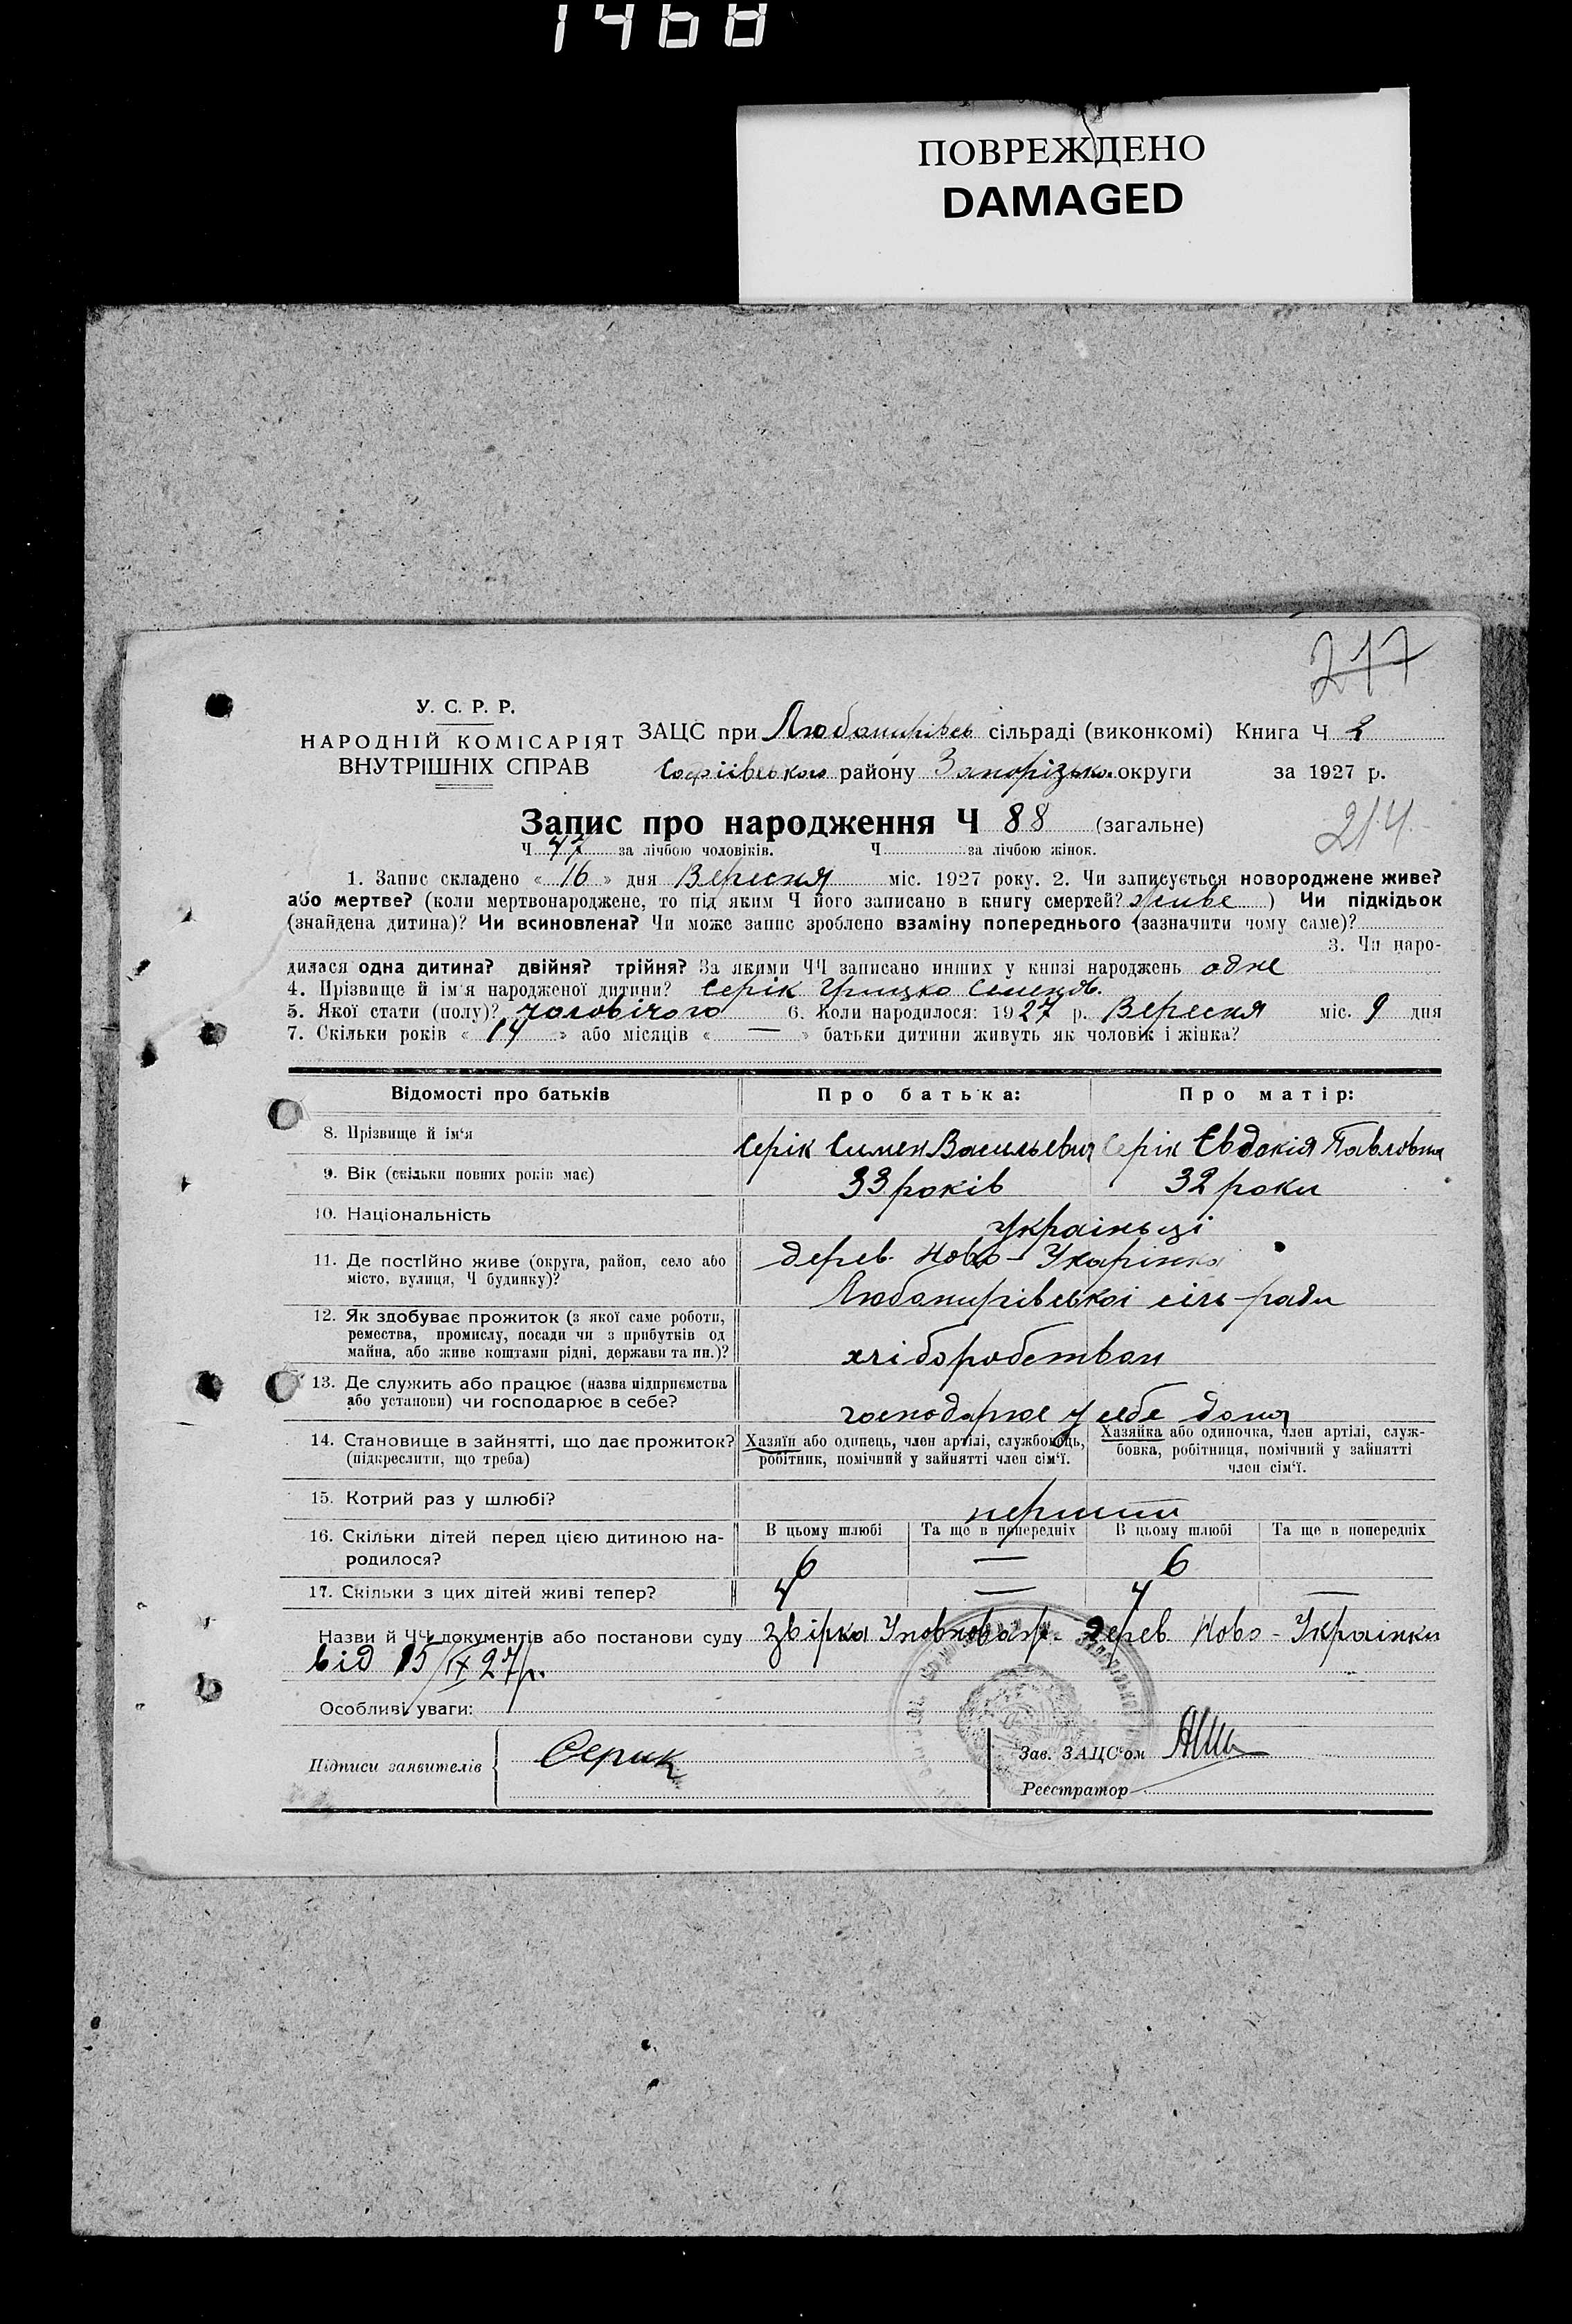 1468
ПОВРЕЖДЕНО
DAMAGED
217
У. С. Р. Р.
НАРОДНІЙ КОМІСАРІЯТ
ВНУТРІШНІХ СПРАВ
ЗАЦС при Любомирівсь сільраді (виконкомі) Книга Ч 2
Софіївського району Запорізько. округи за 1927 р.
Запис про народження Ч 88 (загальне)
214
Ч 47 за лічбою чоловіків. Ч за лічбою жінок.
1. Запис складено « 16 » дня Вересня міс. 1927 року. 2. Чи записується новороджене живе?
або мертве? (коли мертвонароджене, то під яким Ч його записано в книгу смертей? живе ) Чи підкідьок
(знайдена дитина)? Чи всиновлена? Чи може запис зроблено взаміну попереднього (зазначити чому саме)?
3. Чи наро-
дилася одна дитина? двійня? трійня? За якими ЧЧ записано инших у книзі народжень одне
4. Прізвище й ім'я народженої дитини? Серік Грицко Семенов.
5. Якої стати (полу)? чоловічого 6. Коли народилося: 1927 р. Вересня міс. 9 дня
7. Скільки років « 14 » або місяців « — » батьки дитини живуть як чоловік і жінка?
Відомості про батьків Про батька: Про матір:
8. Прізвище й ім'я Серік Симен Васильевич Серік Евдокія Павловна
9. Вік (скільки повних років має) 33 років 32 роки
10. Національність Україньці
11. Де постійно живе (округа, район, село або
місто, вулиця, Ч будинку)?
дерев. Ново-Укарінка
Любомирівської сіль-ради
12. Як здобуває прожиток (з якої саме роботи,
ремества, промислу, посади чи з прибутків од
майна, або живе коштами рідні, держави та ин.)?
хліборобством
13. Де служить або працює (назва підприємства
або установи) чи господарює в себе?
господарює у себе дома
14. Становище в зайнятті, що дає прожиток?
(підкреслити, що треба)
Хазяїн або одинець, член артілі, службовець,
робітник, помічний у зайнятті член сім'ї.
Хазяйка або одиночка, член артілі, служ-
бовка, робітниця, помічний у зайнятті
член сім'ї.
15. Котрий раз у шлюбі? перший
16. Скільки дітей перед цією дитиною на-
родилося?
В цьому шлюбі Та ще в попередніх В цьому шлюбі Та ще в попередніх
6 — 6
17. Скільки з цих дітей живі тепер? 4 — 4 —
Назви й ЧЧ документів або постанови суду звірка Уповноваж. дерев. Ново-Українки
від 15/IX 27р.
Особливі уваги:
Підписи заявителів Серик
Зав. ЗАЦС'ом
Реєстратор